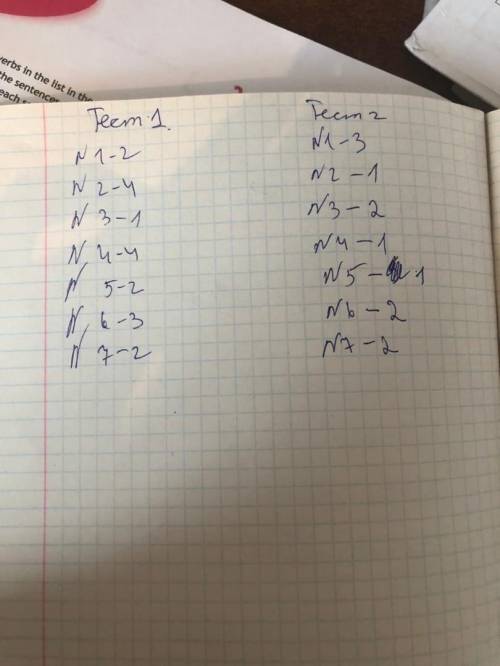 verbs in the list in the
the sentences
each
Тест 1.
N 1-2
N 2-4
N 3-1
N 4-4
N 5-2
N 6-3
N 7-2
Тест 2
N1-3
N2-1
N3-2
N4-1
N5-1
N6-2
N7-2